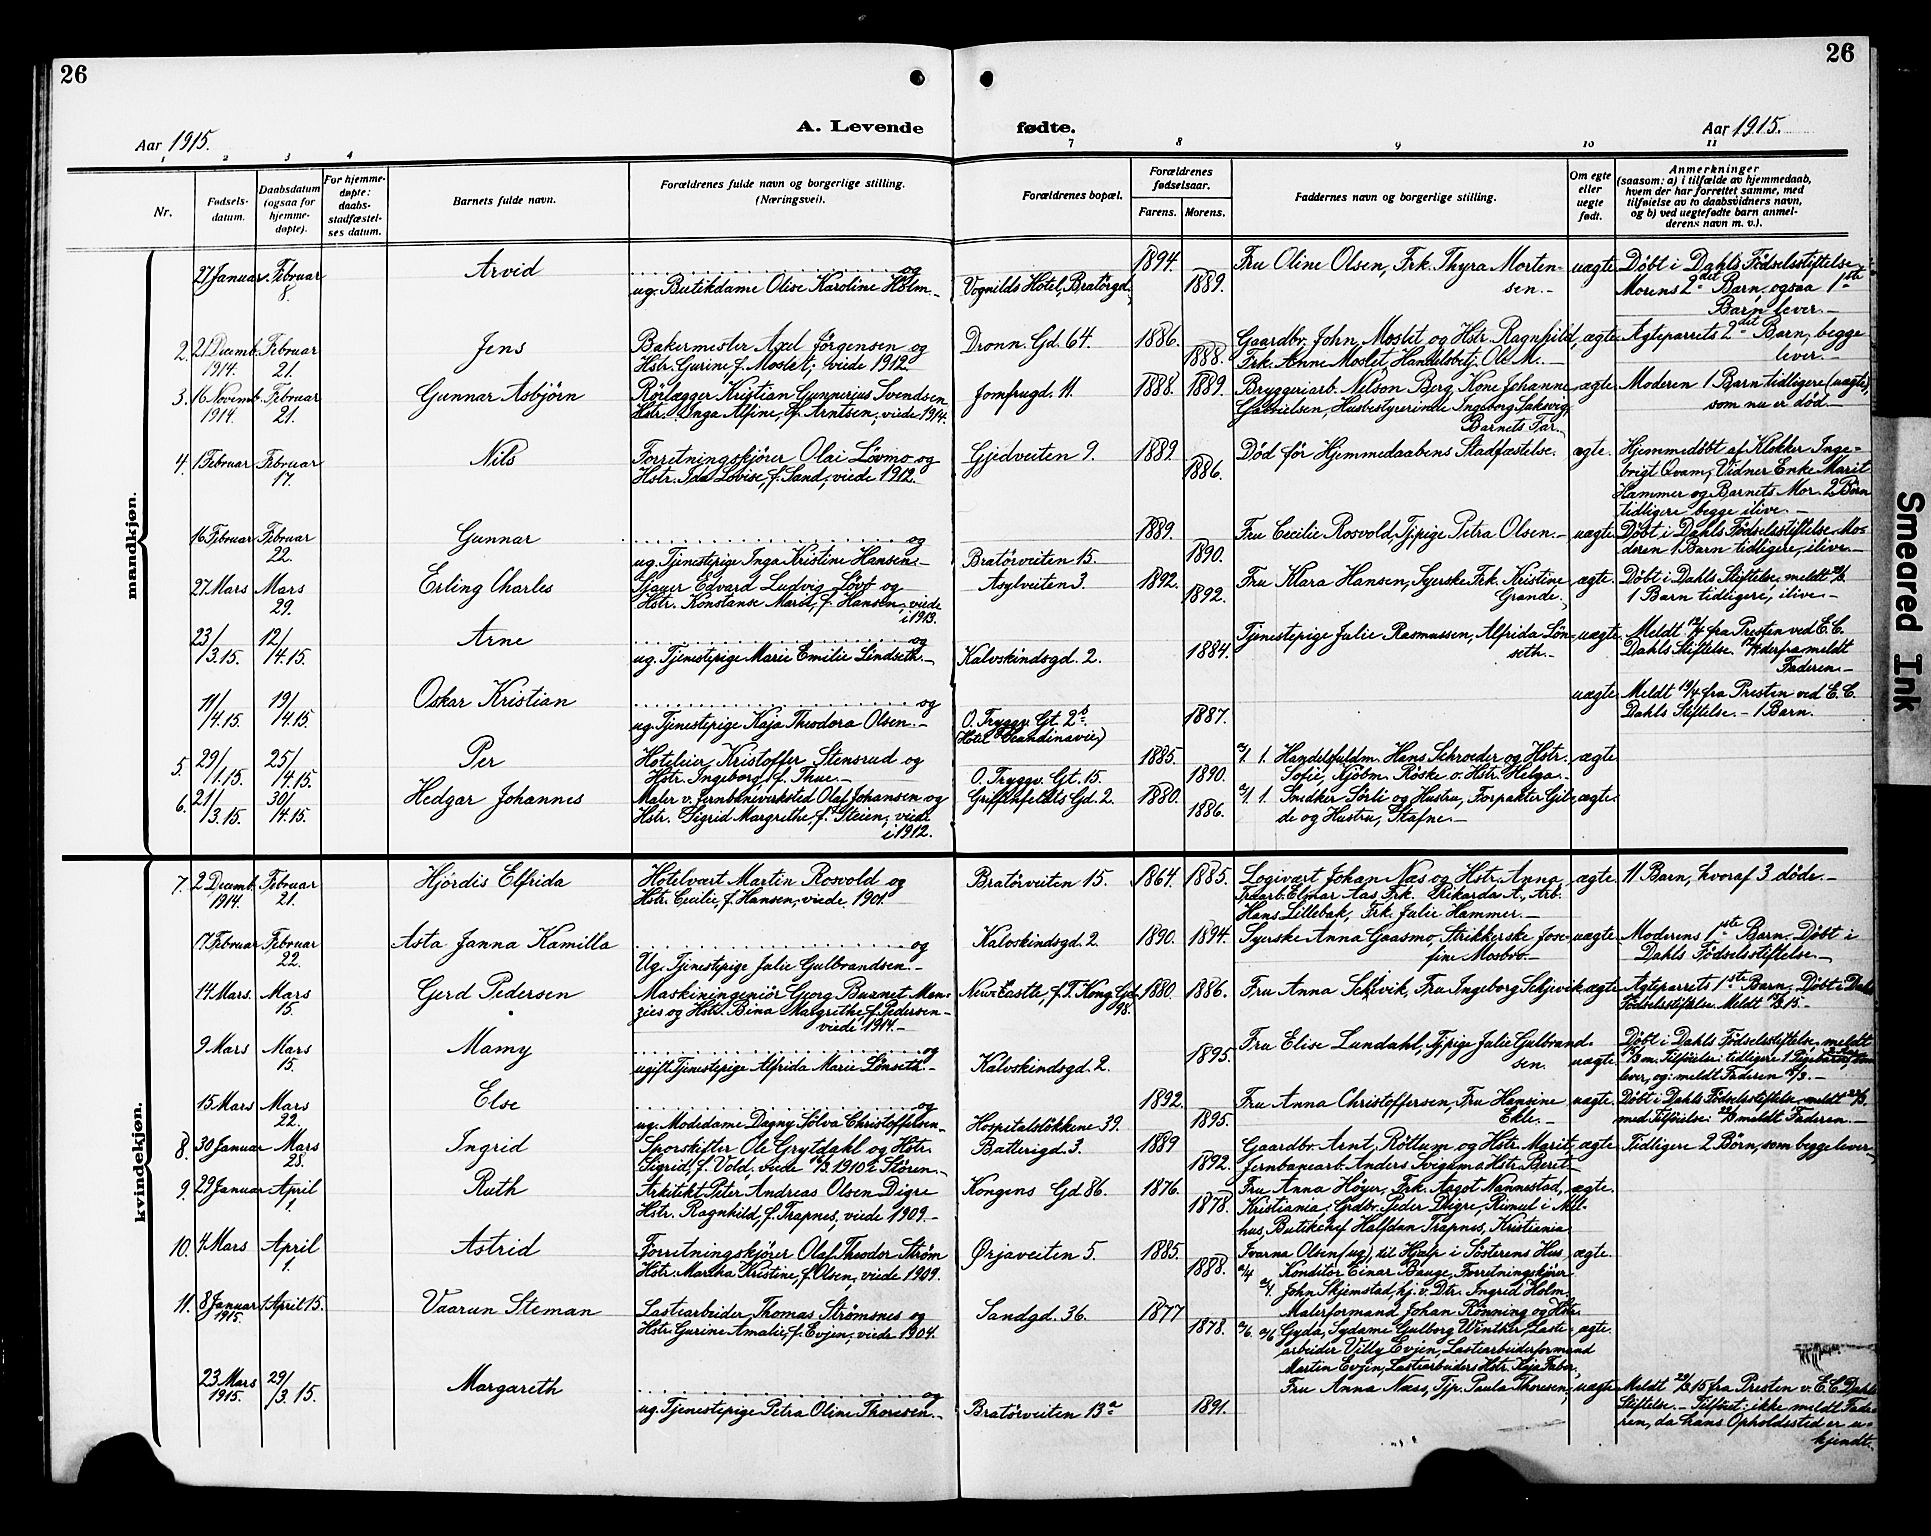 26
26
A. Levende fødte.
Aar 1915.
Aar 1915.
1 2 3 4 7 8 9 10 11
Nr.
Fødsels-
datum.
Daabsdatum
(ogsaa for
hjemme-
døpte).
For hjemme-
døpte:
daabs-
stadfæstel-
ses datum.
Barnets fulde navn.
Forældrenes fulde navn og borgerlige stilling.
(Næringsvei).
Forældrenes bopæl.
Forældrenes
fødselsaar.
Farens. Morens.
Faddernes navn og borgerlige stilling.
Om egte
eller
uegte
født.
Anmerkninger
(saasom: a) i tilfælde av hjemmedaab,
hvem der har forrettet samme, med
tilføielse av to daabsvidners navn,
og b) ved uegtefødte barn anmel-
derens navn m. v.).
mandkjøn.
27 Januar Februar Arvid og 1894. Fru Oline Olsen, Frk. Thyra Morten- uægte Döbt i Dahls Födselsstiftelse
8. ug. Butikdame Olise Karoline Holm Vognilds Hotel, Bratörgd. 1889. sen. Morens 2det Barn, ogsaa 1ste
Barn lever.
2. 21 Decemb. Februar Jens Bakermester Axel Jörgensen og Dronn. Gd. 64. 1886. Gaardbr. John Moslet og Hstr. Ragnhild, ægte Ægteparrets 2det Barn, begge
1914. 21. Hstr. Gurine f. Moslet; viede 1912. 1888. Frk. Anne Moslet, Handelsbetj. Ole M. lever.
3. 16 Novemb. Februar Gunnar Asbjørn Rörlægger Kristian Gunnerius Svendsen Jomfrugd. 11. 1888. 1889. Bryggeriarb. Nelson Berg, Kone Johanne ægte Moderen 1 Barn tidligere (uægte),
1914. 21. Hstr. Inga Alfine, f. Arntsen, viede 1914. Gabrielsen, Husbestyrerinde Ingeborg Saksvig, som nu er död.
Barnets Far.
4. 1 Februar Februar Nils Forretningskjörer Olai Lövmo og Gjedveiten 9. 1889 Död för Hjemmedaabens Stadfæstelse. ægte. Hjemmedöbt af Klokker Inge-
17. Hstr. Ida Lovise, f. Sand, viede 1912. 1886. brigt Qvam, Vidner Enke Marit
Hammer og Barnets Mor. 2 Börn
tidligere begge ilive.
16 Februar Februar Gunnar og 1889. Fru Cecilie Rosvold, Tjpige Petra Olsen. uægte Döbt i Dahls Födselsstiftelse Mo-
22. ug. Tjenestepige Inga Kristine Hansen. Bratörveiten 15. 1890. deren 1 Barn tidligere, ilive.
27 Mars Mars Erling Charles Edvard Ludvig Lövö og Asylveiten 3. 1892. Fru Klara Hansen, Syerske Frk. Kristine ægte. Döbt i Dahls Stiftelse, meldt
29. Hstr. Konstanse f. Hansen, viede 1892. Grande. 1 Barn tidligere, ilive.
i 1913.
23/3.15. 12/4.15. Arne og Tjenestepige Julie Rasmussen, Alfrida Lön- uægte. Meldt 12/4 fra Presten ved E. C.
ug. Tjenestepige Marie Emilie Lindseth. Kalvskindsgd. 2. 1884. seth. Dahls Stiftelse. derfra meldt
Faderen.
11/4.15. 19/4.15. Oskar Kristian og uægte. Meldt 19/4 fra Presten ved E. C.
ug. Tjenestepige Kaja Theodora Olsen. O. Tryggv. Gt. 2b 1887. Dahls Stiftelse. 1 Barn.
(Hotel Scandinavie)
5. 29/1.15. 25/4.15. Per Hoteleier Kristoffer Stensrud og 1885. 1. Handelsfuldm. Hans Schroeder og Hstr. ægte
Hstr. Ingeborg f. Thue. O. Tryggv. Gt. 15. 1890. Sofie, Kjöbm. Röske o. Hstr. Helga.
6. 21/3.15. 30/4.15. Hedgar Johannes Maler v. Jernbaneverksted Olaf Johansen og Griffenfeldts Gd. 2. 1880. 1. Snedker Sörli og Hustru, Forpakter Gil- ægte.
Hstr. Sigrid Margrethe, f. Steien, viede 1886. de og Hustru, Stafne.
i 1912.
kvindekjøn.
7. 2 Decemb. Februar Hjördis Elfrida Hotelvært Martin Rosvold og Bratörveiten 15. 1864. 1885. Logivært Johan Næs og Hstr. Anna ægte 11 Barn, hvoraf 3 döde.
1914. 21. Hstr. Cecilie, f. Hansen, viede 1901. Elmar Aas, Frk. Rikarda A., Arb.
Hans Lillebak, Frk. Julie Hammer.
17 Februar Februar Asta Janna Kamilla og Kalvskindsgd. 2 1890. 1894. Syerske Anna Gaasmo, Strikkerske Jose- uægte. Moderens 1ste Barn. Döbt i
22. Ug. Tjenestepige Julie Gulbrandsen. fine Mosbro. Dahls Födselsstiftelse.
14 Mars. Mars Gerd Pedersen Maskiningeniör Georg Burnet Men- New-Castle, f. T. Kong. Gd. 1880. 1886. Fru Anna Schjvik, Fru Ingeborg Schjvik. ægte. Ægteparrets 1ste Barn. Döbt i Dahls
15. zies og Hstr. Bina Margrethe, f. Pedersen 98. Födselsstiftelse. Meldt
viede 1914.
9 Mars Mars Mamy og Fru Elise Lundahl, Tjpige Julie Gulbrand- Döbt i Dahls Födselsstiftelse, meldt
15. ugift Tjenestepige Alfrida Marie Lönseth. Kalvskindsgd. 2. 1895. sen. uægte. m. Tilföielse: tidligere 1
lever, og: meldt Faderen
15 Mars Mars Else og 1892. Fru Anna Christoffersen, Fru Hansine uægte. Döbt i Dahls Födselsstiftelse, meldt
22. ug. Modedame Dagny Solva Christoffersen. Hospitalslökkene 39. 1895. Ekle. med Tilföielse: meldt Faderen.
8. 30 Januar Mars Ingrid Sporskifter Ole Grytdahl og Hstr. Batterigd. 3. 1889 Gaardbr. Arnt Röttum og Hstr. Marit, ægte Tidligere 2 Börn, som begge lever.
28. Sigrid, f. Vold, viede 1910 i Stören. 1892. Jernbanearb. Anders Svigum o. Hstr. Beret
9. 29 Januar April Ruth Arkitekt Peter Andreas Olsen Digre Kongens Gd 86. 1876. Fru Anna Höyer, Frk. Argot Nannestad, ægte.
1. Hstr. Ragnhild, f. Trapnes, viede 1909. 1878. Kristiania, Grdbr. Peder Digre, Rimul i Mel-
hus, Butikchef Halfdan Trapnes, Kristiania
10. 4 Mars April Astrid Forretningskjörer Olaf Theodor Ström Ørjaveiten 5. 1885. Ivarna Olsen (ug), til Hjælp i Sösterens Hus, ægte.
1. Hstr. Martha Kristine, f. Olsen, viede 1909. 1888. Konditor Einar Bauge, Forretningskjörer
John Skjemstad, hj. v. Dtr. Ingrid Holm
11. 8 Januar 1 April 15. Vaarun Steman Lastearbeider Thomas Strömsnes og Sandgd. 36. 1877 Malerformand Johan Rönning og Hstr.
1915. Hstr. Gurine Amalie, f. Evjen, viede 1904. 1878. Gyda, Sydame Gulborg Winther, Laste- ægte.
arbeider Villy Evjen, Lastearbeiderformand
Martin Evjen, Lastearbeiders Hstr. Kaja Faber.
23 Mars 29/3.15. Margareth og Fru Anna Næss, Tjp. Paula Thoresen, uægte Meldt fra Presten v. E. C. Dahls
1915. ug. Tjenestepige Petra Oline Thoresen. Bratörveiten 13a 1891. Stiftelse. Tilföiet: ikke meldt Fade-
ren, da hans Opholdssted er u-
kjendt.
Smeared Ink